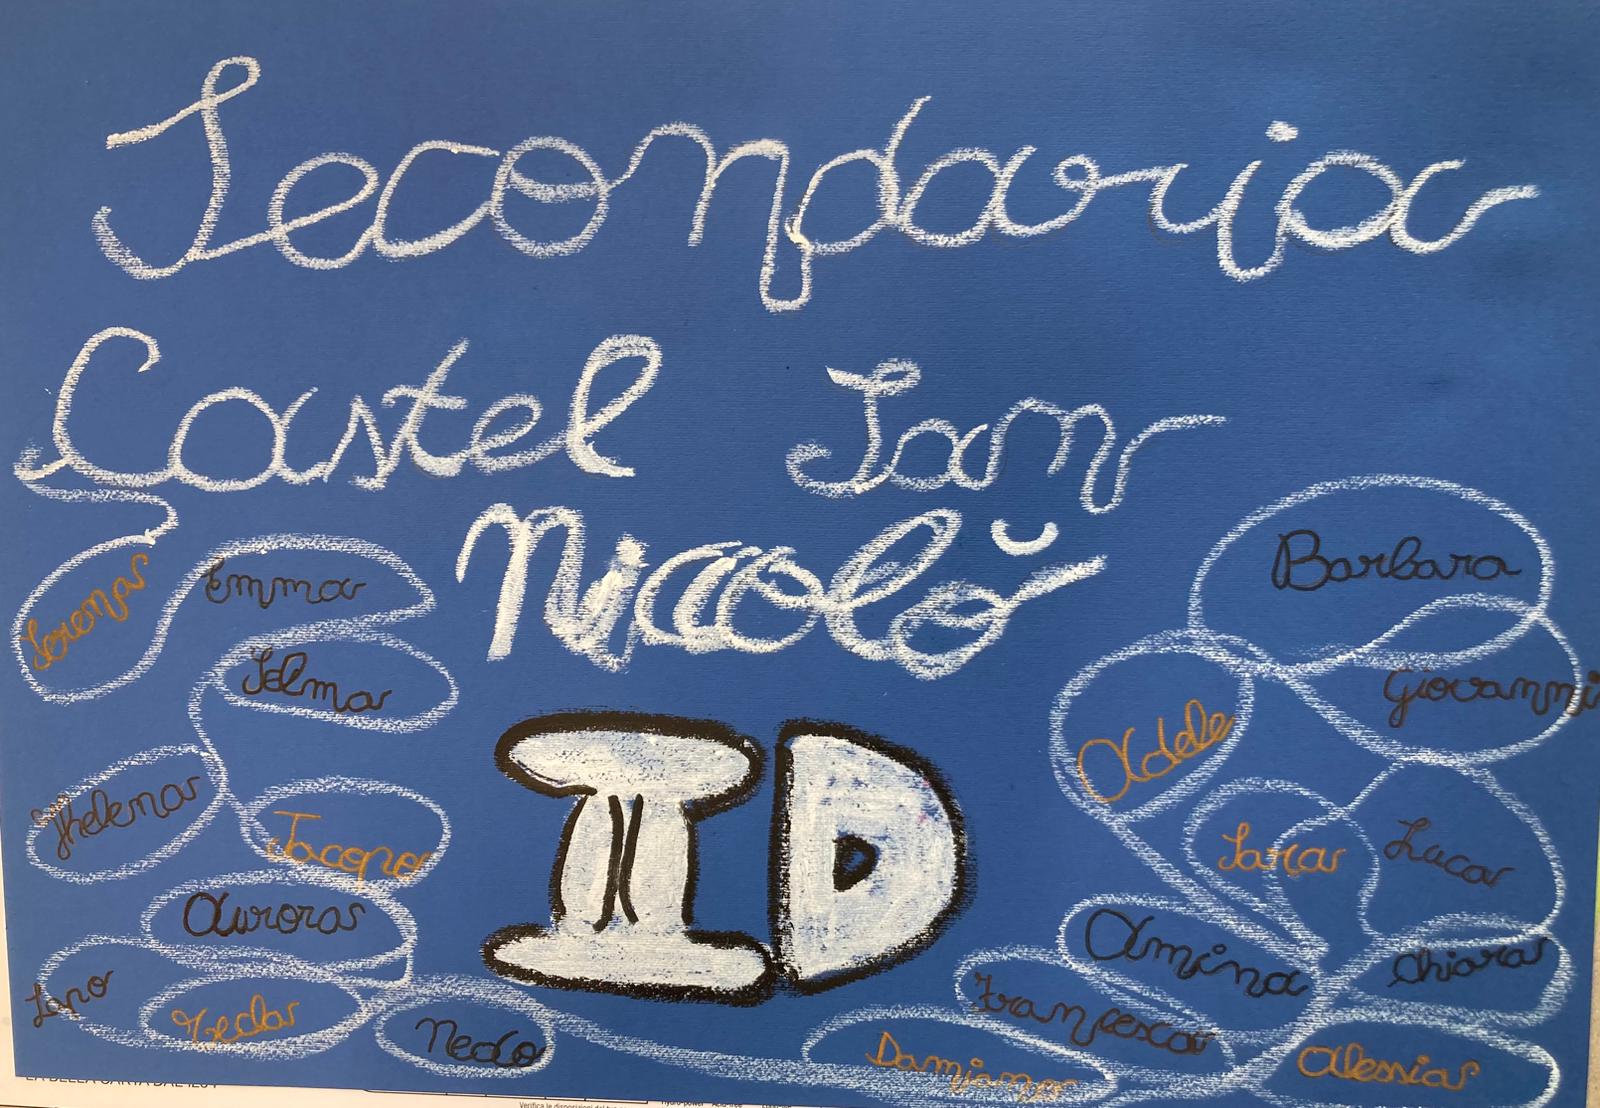 Secondaria
Castel San
Nicolò
ID
Emma
Selma
Jhelena
Jacopo
Aurora
Lapo
Neda
Barbara
Giovanni
Adele
Sara
Luca
Amina
Chiara
Francesca
Damiano
Alessia